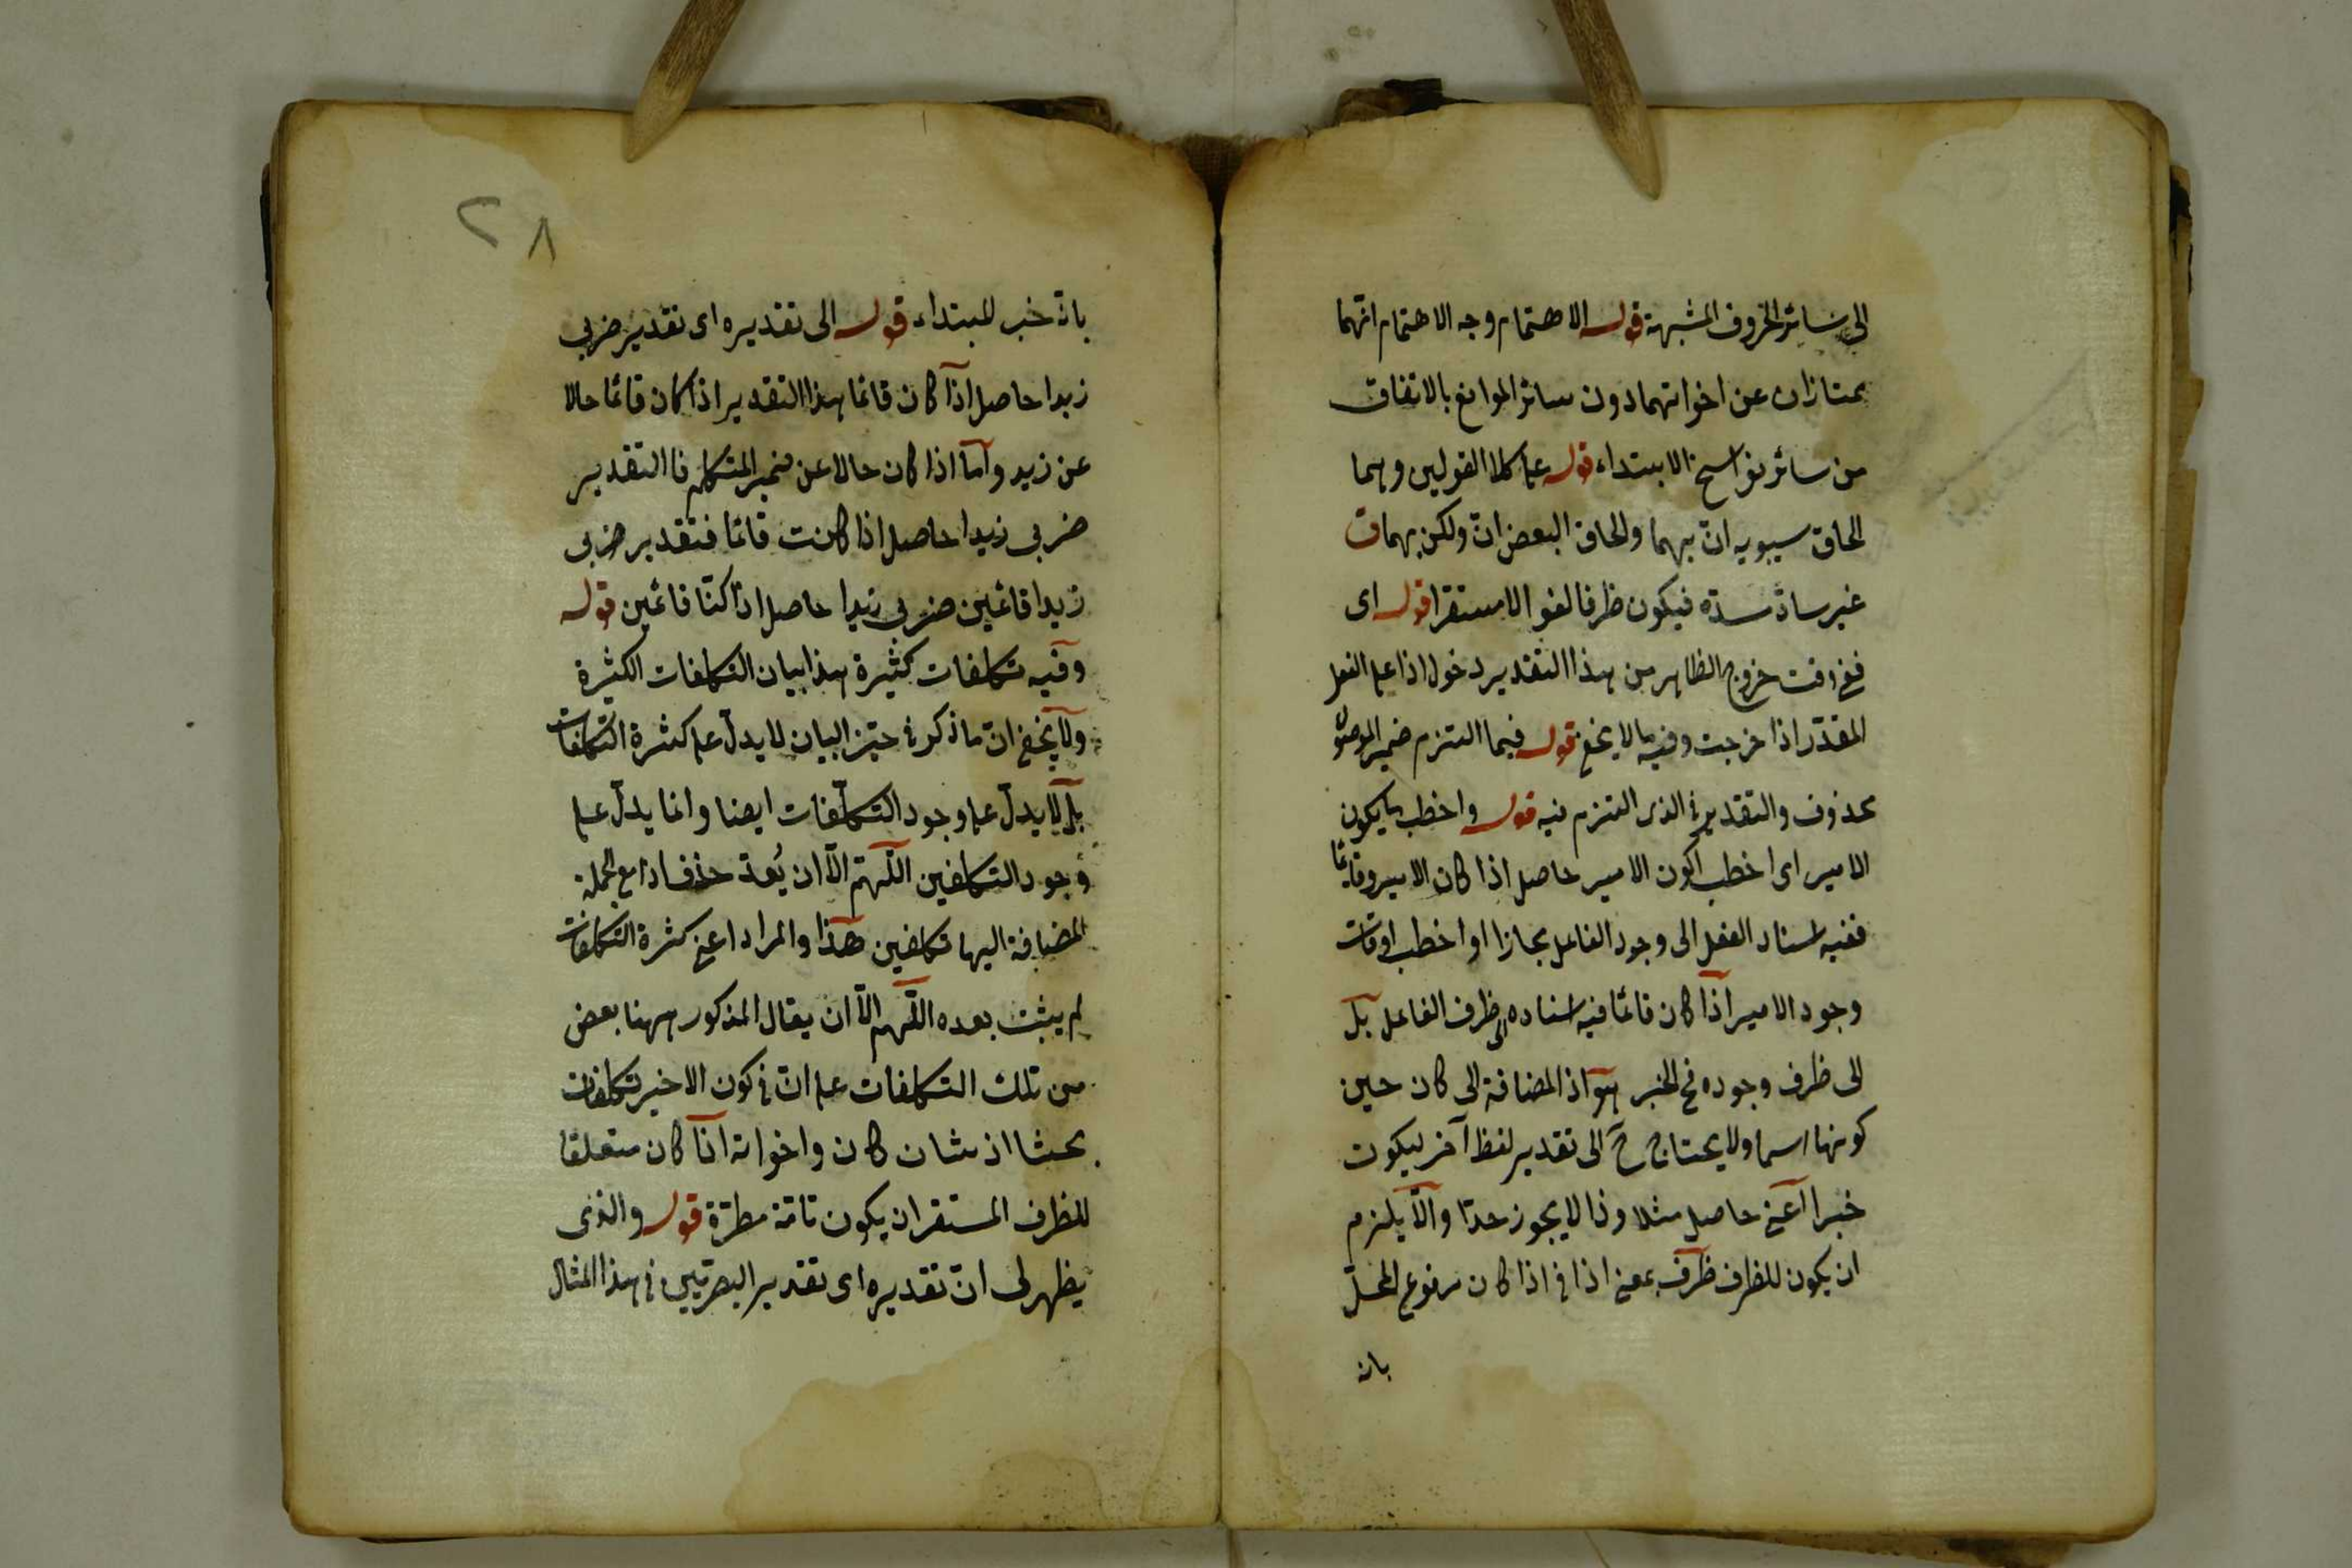 الى سائر الحروف المشبهة قوله الاهتمام وجه الاهتمام انهما
يمتازان عن اخواتهما دون سائر الموانع بالاتفاق
من سائر نواسخ الابتداء قوله على كلا القولين وهما
الحاق سيبويه انّ بهما والحاق البعض انّ ولكن بهما
غير سادّ مسدّه فيكون ظرفا لغوا لا مستقرا قوله اى
خروج الظاهر من هذا التقدير دخول اذا على الفعل
المقدّر اذا خرجت وفيه ما لا يخفى قوله فيما التزم ضمير الموصول
محذوف والتقدير فى الذى التزم فيه قوله واخطب ما يكون
الامير اى اخطب اكون الامير حاصل اذا كان الامير قائما
ففيه اسناد الفعل الى وجود الفاعل مجازا او اخطب اوقات
وجود الامير اذا كان قائما فيه اسناده الى ظرف الفاعل بل
الى ظرف وجوده فح الخبر هو اذا المضافة الى كان حين
كونها اسما ولا يحتاج ح الى تقدير لفظ آخر ليكون
خبرا اعنى حاصل مثلا وذا لا يجوز حدّا والّا يلزم
ان يكون للظرف ظرف بمعنى اذا فى اذا كان مرفوع المحلّ
بانه
٢٨
بانّه خبر للمبتداء قوله الى تقديره اى تقدير ضربى
زيدا حاصل اذا كان قائما هذا التقدير اذا كان قائما حالا
عن زيد وأما اذا كان حالا عن ضمير المتكلم فالتقدير
ضربى زيدا حاصل اذا كنت قائما فتقدير ضربى
زيدا قائمين ضربى زيدا حاصل اذا كنّا قائمين قوله
وفيه تكلفات كثيرة هذا بيان التكلفات الكثيرة
ولا يخفى انّ ما ذكر فى حيّز البيان لا يدلّ على كثرة التكلفات
بل لا يدلّ على وجود التكلّفات ايضا وانما يدلّ على
وجود التكلفين اللّهمّ الّا ان يُعدّ حذف اذا مع الجملة
المضافة اليها تكلفين هذا والمراد اعنى كثرة التكلفات
لم يثبت بعده اللّهم الّا ان يقال المذكور ههنا بعض
من تلك التكلفات على انّ فى كون الاخير تكلفات
بحثا اذ شان كان واخواته اذا كان متعلقا
للظرف المستقر ان يكون تامّة مطّردة قوله والذى
يظهر لى انّ تقديره اى تقدير البصريّين فى هذا المثال